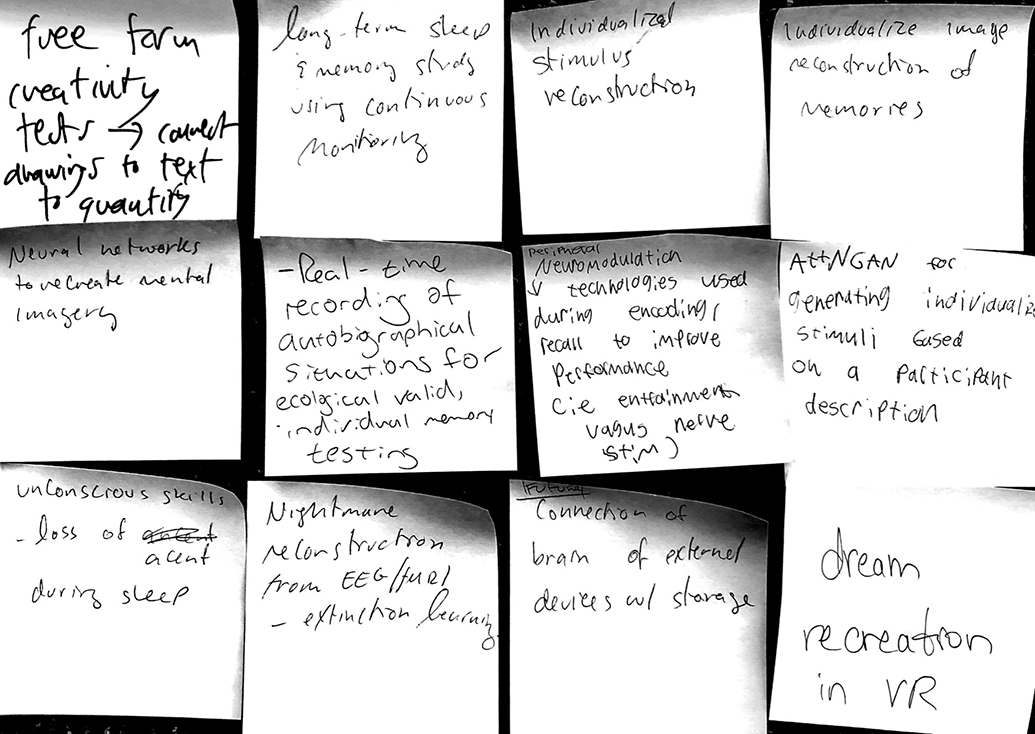 free form
creativity
tests → connect
drawings to text
to quantify
long-term sleep
& memory study
using continuous
monitoring
Individualized
stimulus
reconstruction
Individualize image
reconstruction of
memories
Neural networks
to recreate mental
imagery
- Real-time
recording of
autobiographical
situations for
ecological valid,
individual memory
testing
peripheral
Neuromodulation
↓ technologies used
during encoding/
recall to improve
performance
(ie entrainment
vagus nerve
stim)
AttNGAN for
generating individualiz
stimuli based
on a participant
description
unconscious skills
- loss of
acent
during sleep
Nightmare
reconstruction
from EEG/fMRI
- extinction learning
Future
Connection of
brain of external
devices w/ storage
dream
recreation
in VR